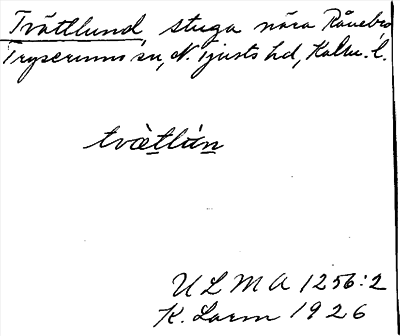 Tvättlund, stuga nära Rånebro
Tryserums sn, N. Tjusts hd, Kalm. l.
tvàtlún
ULMA 1256:2
K. Larm 1926